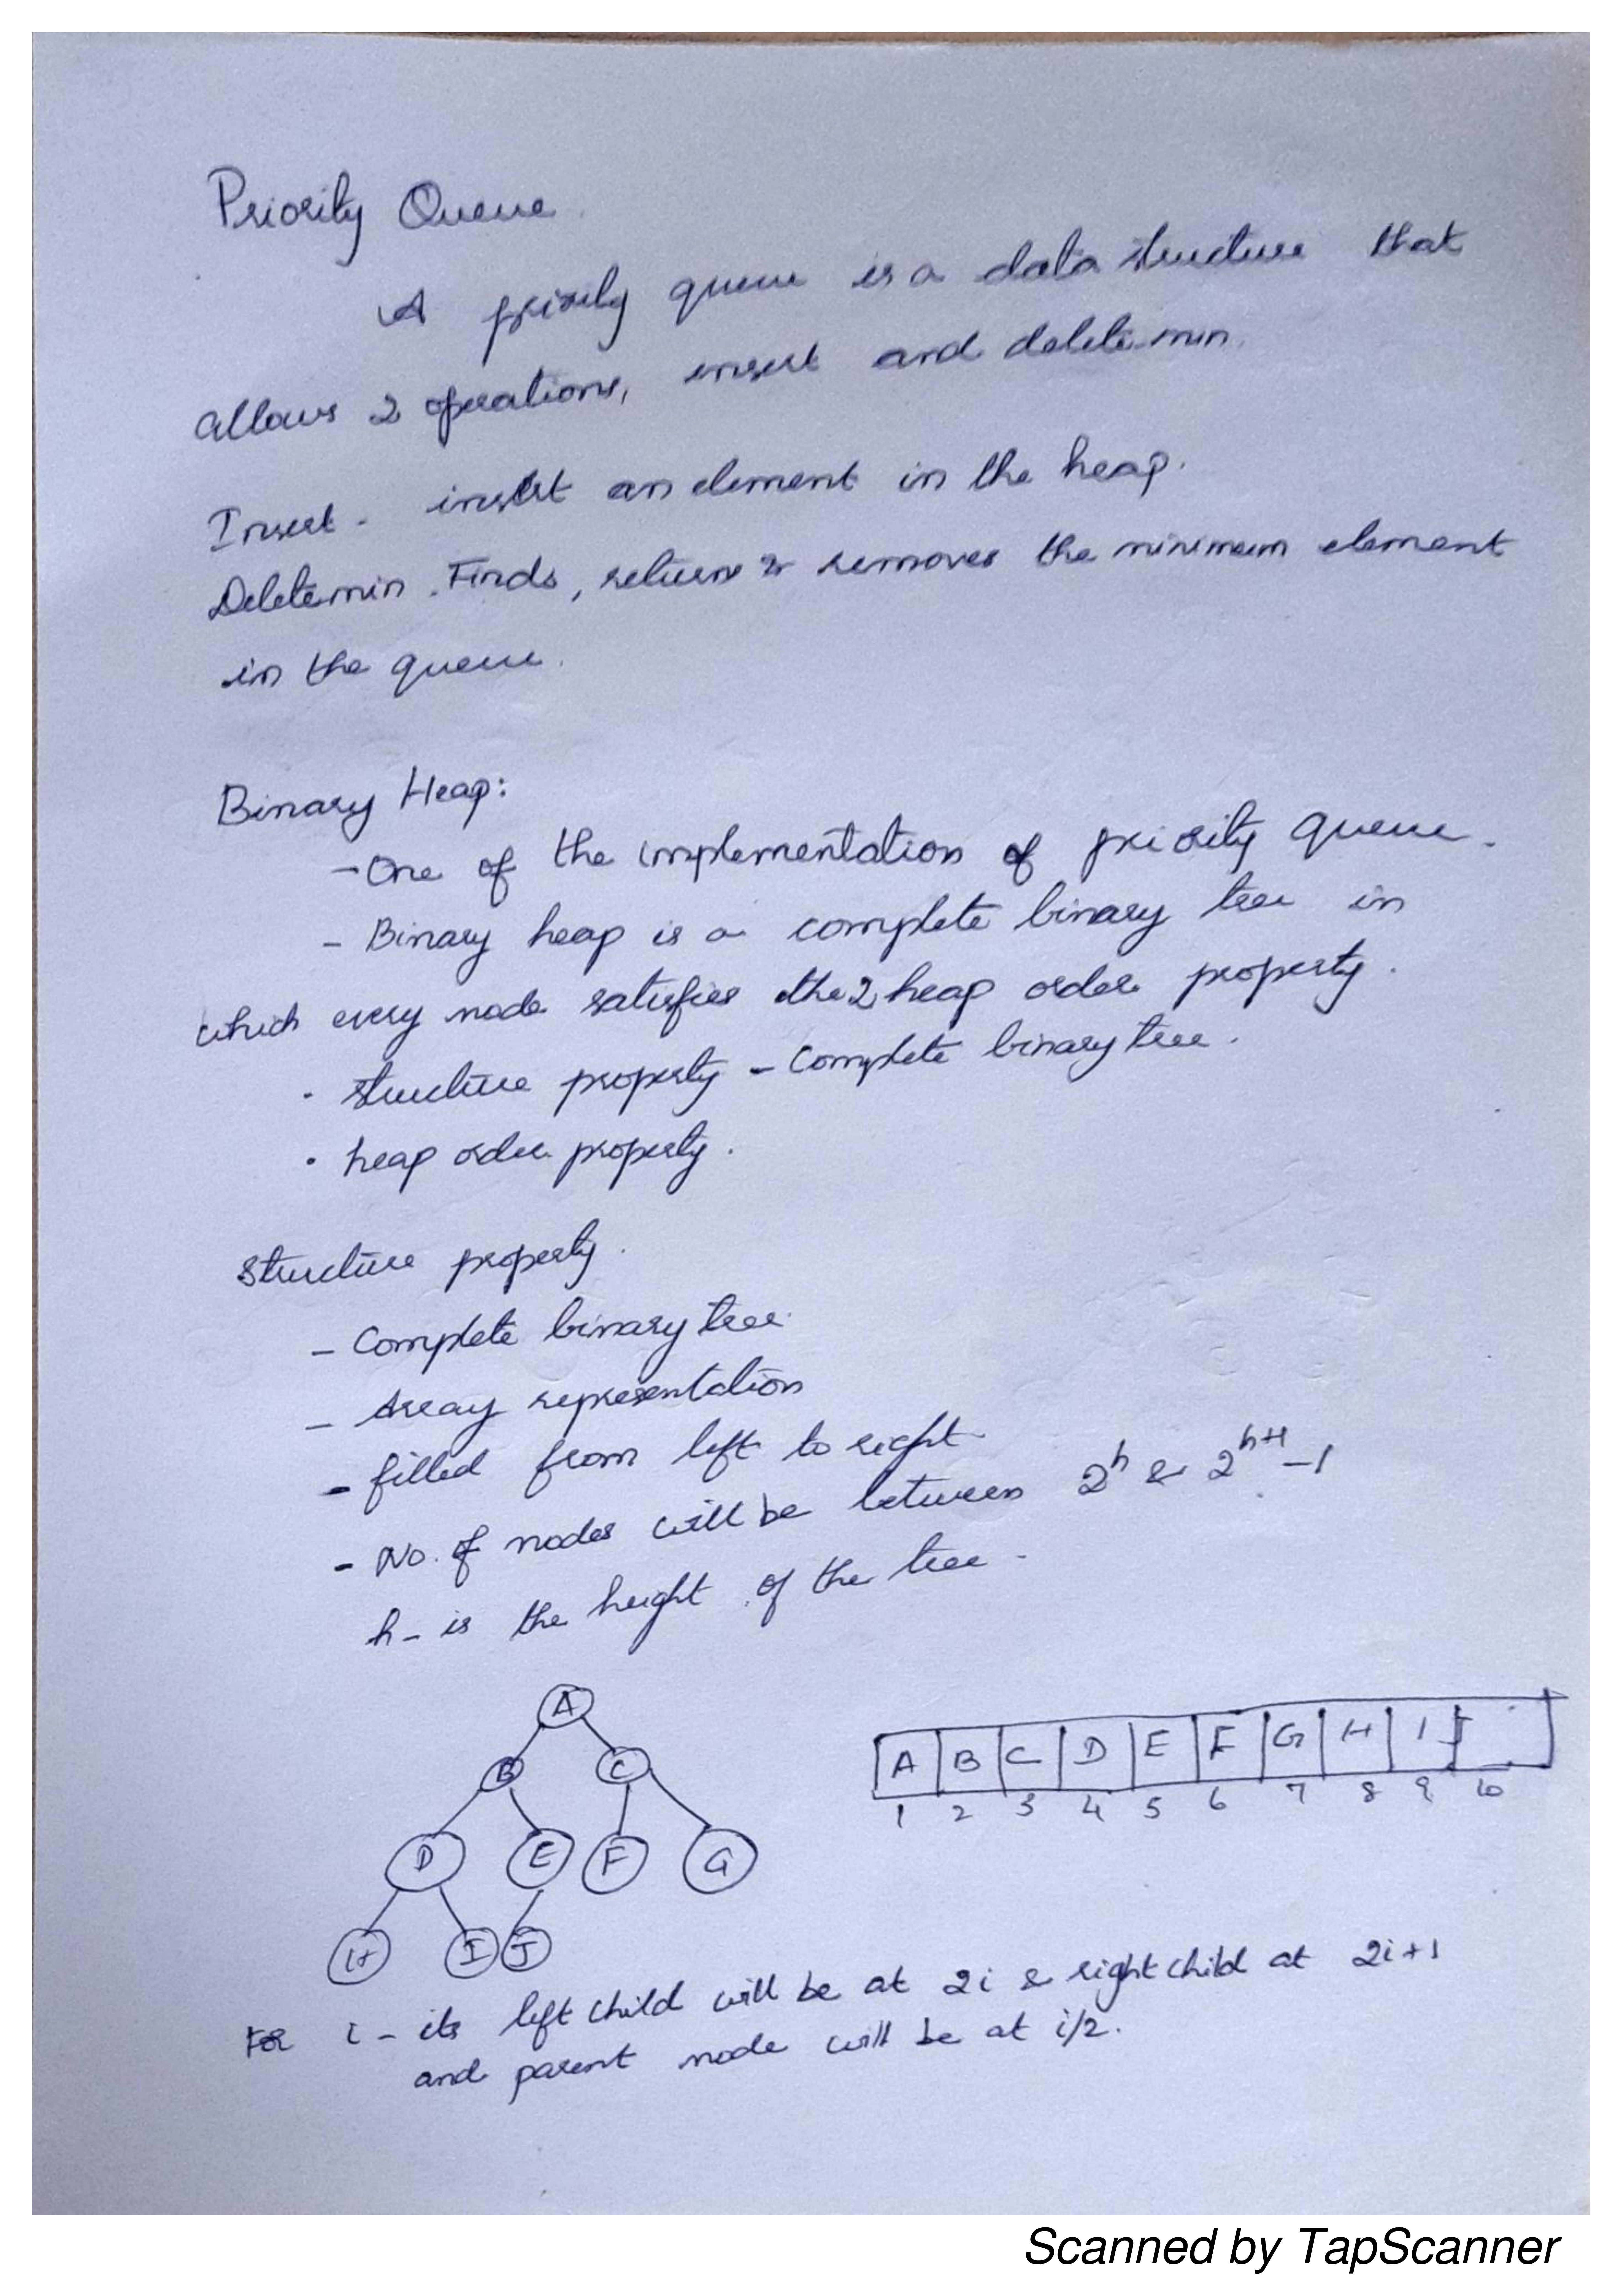 Priority Queue.
A priority queue is a data structure that
allows 2 operations, insert and delete min.
Insert - insert an element in the heap.
Deletemin. Finds, return & removes the minimum element
in the queue.
Binary Heap:
- One of the implementation of priority queue.
- Binary heap is a complete binary tree in
which every node satisfies the 2 heap order property.
· structure property - Complete binary tree.
· heap order property.
Structure property.
- Complete binary tree.
- Array representation
- filled from left to right
- No. of nodes will be between 2^h & 2^{h+1} - 1
h - is the height of the tree -
A
B C
D E F G
H I J
A B C D E F G H I J
1 2 3 4 5 6 7 8 9 10
For i - its left child will be at 2i & right child at 2i+1
and parent node will be at i/2.
Scanned by TapScanner